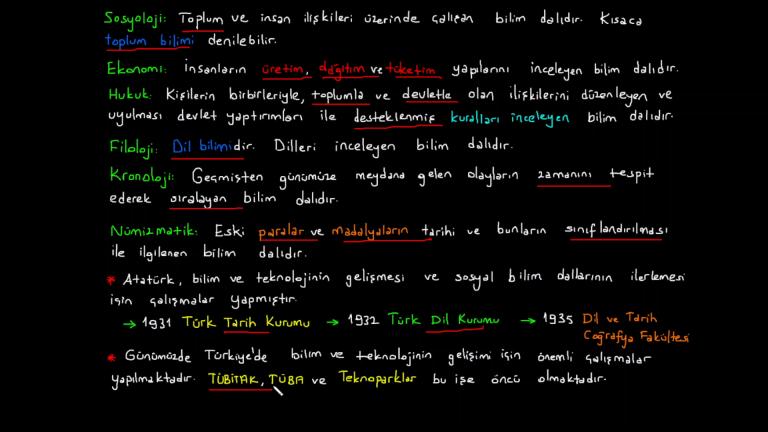 Sosyoloji: Toplum ve insan ilişkileri üzerinde çalışan bilim dalıdır. Kısaca
toplum bilimi denilebilir.
Ekonomi: İnsanların üretim, dağıtım ve tüketim yapılarını inceleyen bilim dalıdır.
Hukuk: Kişilerin birbirleriyle, toplumla ve devletle olan ilişkilerini düzenleyen ve
uyulması devlet yaptırımları ile desteklenmiş kuralları inceleyen bilim dalıdır.
Filoloji: Dil bilimidir. Dilleri inceleyen bilim dalıdır.
Kronoloji: Geçmişten günümüze meydana gelen olayların zamanını tespit
ederek sıralayan bilim dalıdır.
Nümizmatik: Eski paralar ve madalyaların tarihi ve bunların sınıflandırılması
ile ilgilenen bilim dalıdır.
* Atatürk, bilim ve teknolojinin gelişmesi ve sosyal bilim dallarının ilerlemesi
için çalışmalar yapmıştır.
→ 1931 Türk Tarih Kurumu → 1932 Türk Dil Kurumu → 1935 Dil ve Tarih
Coğrafya Fakültesi
* Günümüzde Türkiye'de bilim ve teknolojinin gelişimi için önemli çalışmalar
yapılmaktadır. TÜBİTAK, TÜBA ve Teknoparklar bu işe öncü olmaktadır.